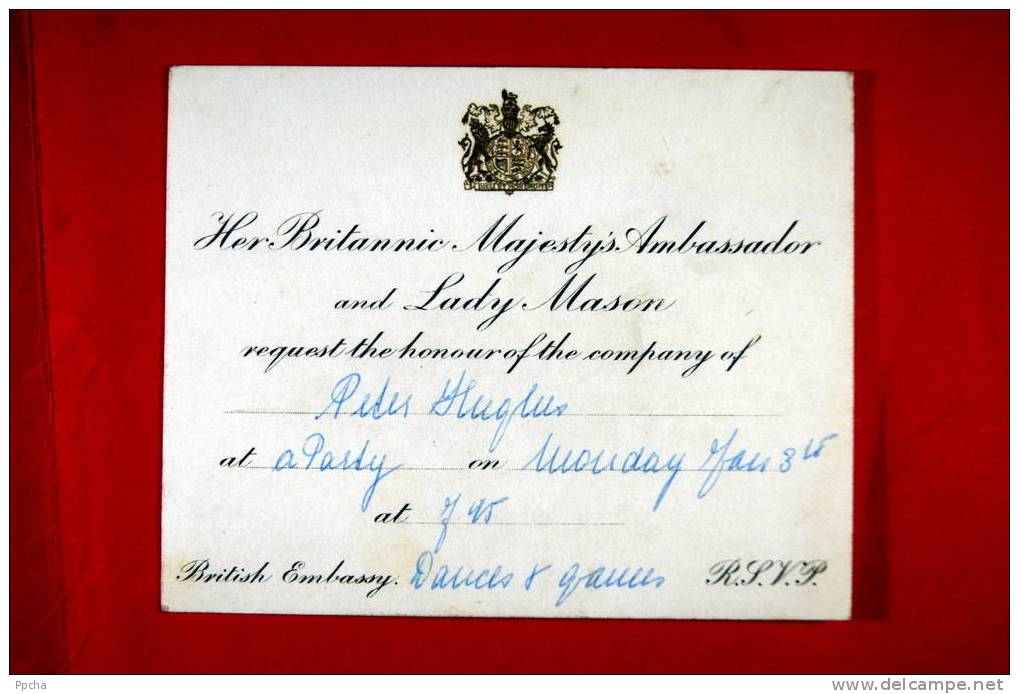 DIEU ET MON DROIT
Her Britannic Majesty's Ambassador
and Lady Mason
request the honour of the company of
Peter Hughes
at a Party on Monday Jan 3rd
at 7 45
British Embassy. Dances & games R.S.V.P.
Ppcha
www.delcampe.net